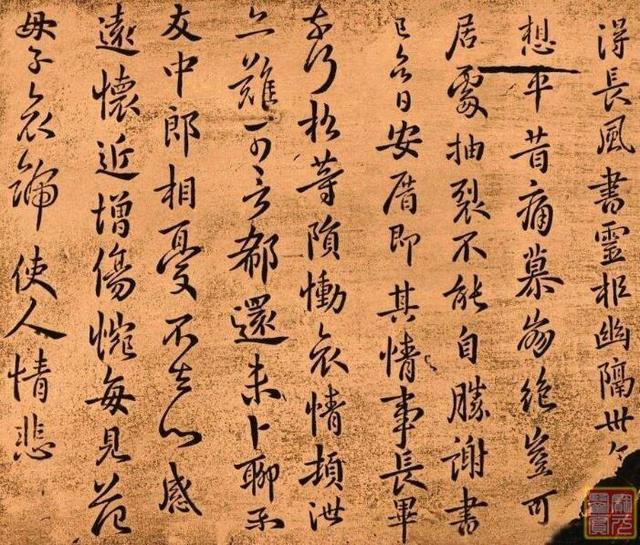 得長風書靈柩幽隔卅
想平昔痛慕崩絕豈可
居處抽裂不能自勝謝書
已今日安厝即其情事長畢
奈何松等隕慟哀情頓泄
亦難可言郗還未卜聊示
友中郎相憂不去心感
遠懷近增傷惋每見范
母子哀號使人情悲